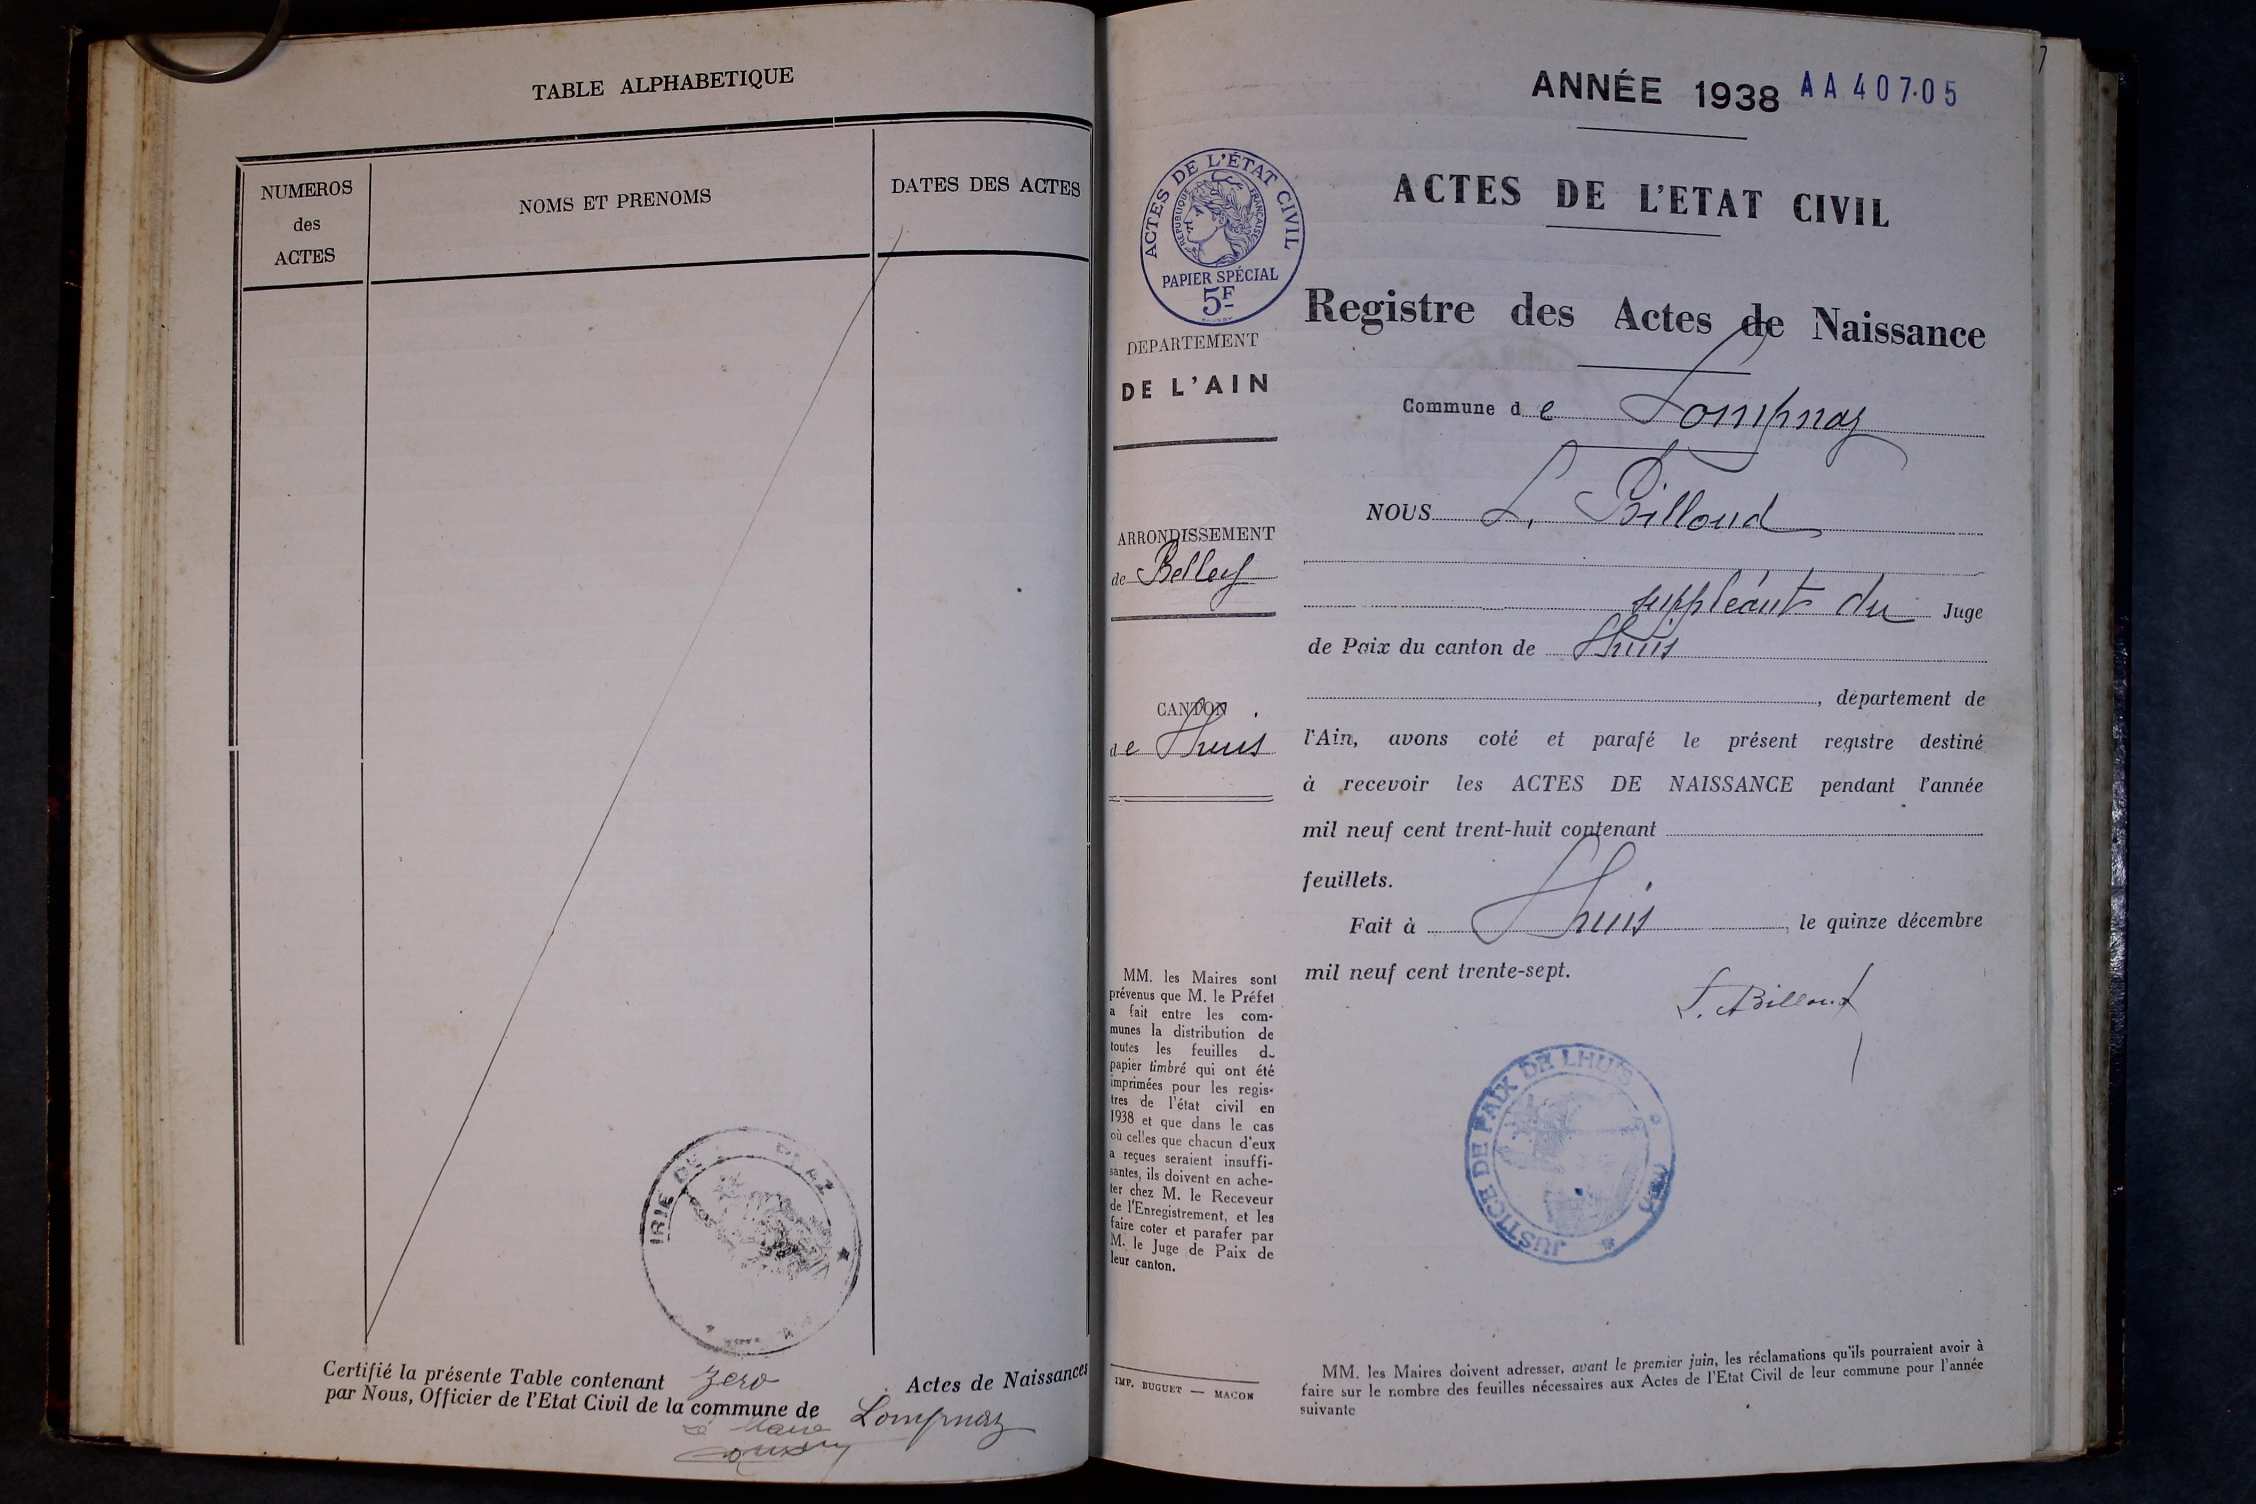 TABLE ALPHABETIQUE
NUMEROS
des
ACTES
NOMS ET PRENOMS
DATES DES ACTES
IRIE DE
Certifié la présente Table contenant zero Actes de Naissances
par Nous, Officier de l'Etat Civil de la commune de Lompnaz
Le Maire
ANNÉE 1938 AA 407.05
ACTES DE L'ÉTAT CIVIL
RÉPUBLIQUE FRANÇAISE
PAPIER SPÉCIAL
5F
DEPARTEMENT
DE L'AIN
ARRONDISSEMENT
de Belley
CANTON
de Lhuis
MM. les Maires sont
prévenus que M. le Préfet
a fait entre les com-
munes la distribution de
toutes les feuilles de
papier timbré qui ont été
imprimées pour les regis-
tres de l'état civil en
1938 et que dans le cas
où celles que chacun d'eux
a reçues seraient insuffi-
santes, ils doivent en ache-
ter chez M. le Receveur
de l'Enregistrement, et les
faire coter et parafer par
M. le Juge de Paix de
leur canton.
IMP. BUGUET — MACON
ACTES DE L'ETAT CIVIL
Registre des Actes de Naissance
Commune de Lompnaz
NOUS L. Billoud
suppléant du Juge
de Paix du canton de Lhuis
, département de
l'Ain, avons coté et parafé le présent registre destiné
à recevoir les ACTES DE NAISSANCE pendant l'année
mil neuf cent trent-huit contenant
feuillets.
Fait à Lhuis, le quinze décembre
mil neuf cent trente-sept.
L. Billoud
JUSTICE DE PAIX DE LHUIS
MM. les Maires doivent adresser, avant le premier juin, les réclamations qu'ils pourraient avoir à
faire sur le nombre des feuilles nécessaires aux Actes de l'Etat Civil de leur commune pour l'année
suivante